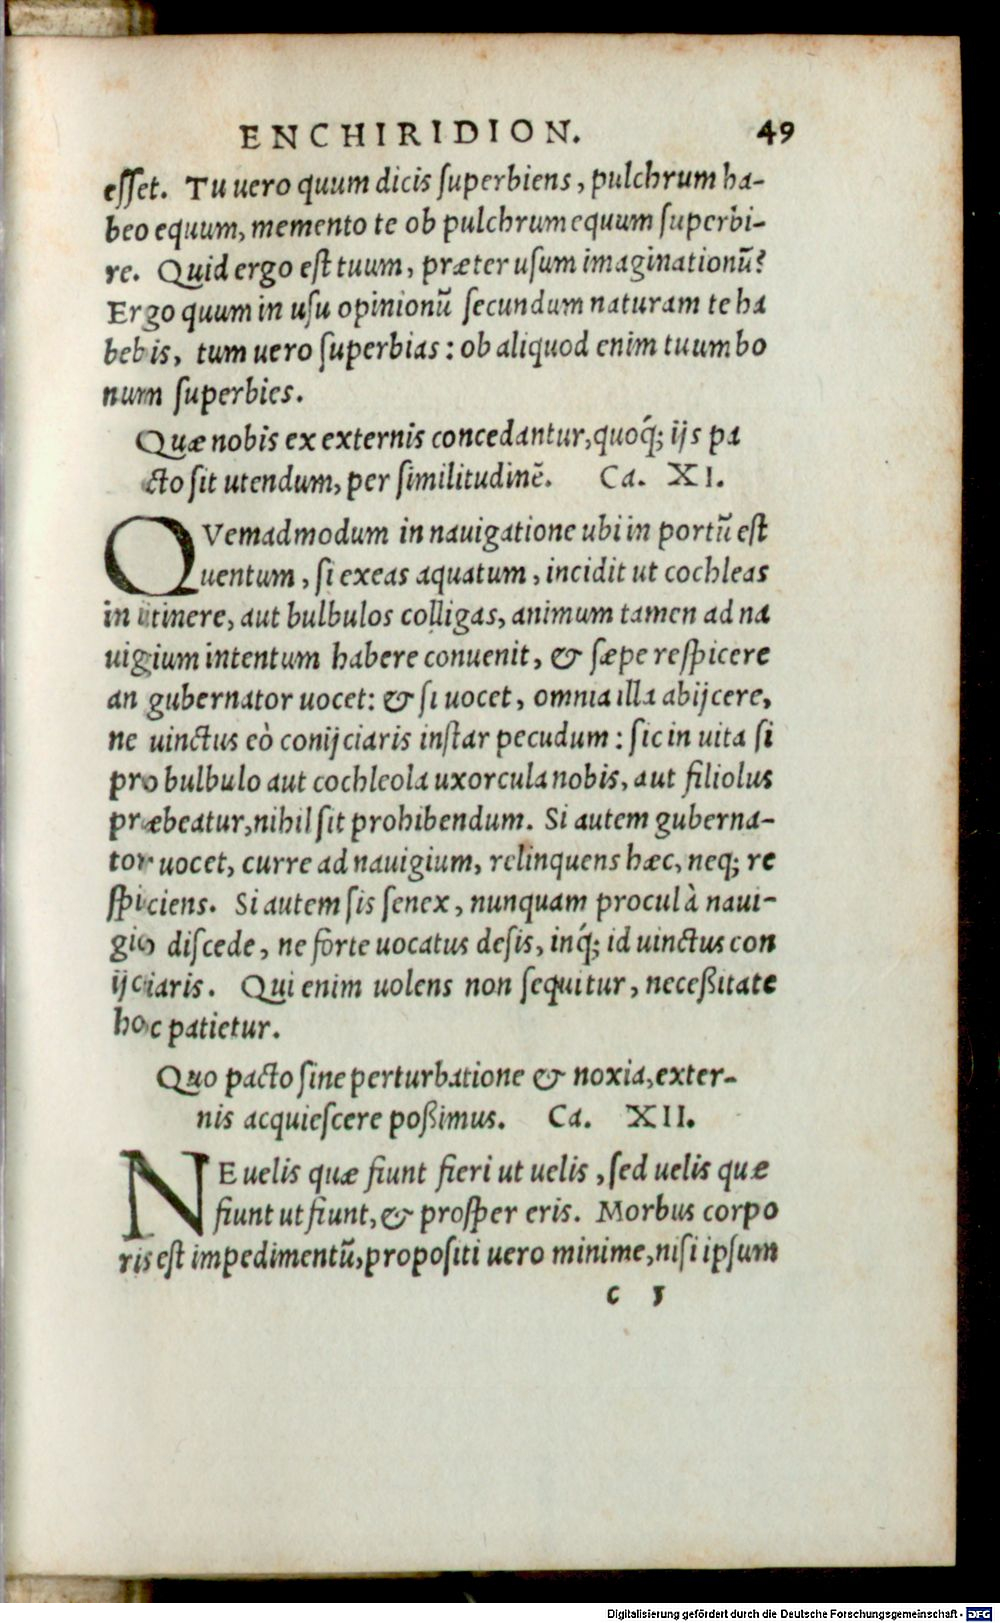 ENCHIRIDION. 49
eſſet. Tu uero quum dicis ſuperbiens, pulchrum ha-
beo equum, memento te ob pulchrum equum ſuperbi-
re. Quid ergo eſt tuum, præter uſum imaginationū?
Ergo quum in uſu opinionū ſecundum naturam te ha
bebis, tum uero ſuperbias: ob aliquod enim tuum bo
num ſuperbies.
Quæ nobis ex externis concedantur, quoq́; ijs pa
cto ſit utendum, per ſimilitudinē. Ca. XI.
QVemadmodum in nauigatione ubi in portū eſt
uentum, ſi exeas aquatum, incidit ut cochleas
in itinere, aut bulbulos colligas, animum tamen ad na
uigium intentum habere conuenit, & ſæpe reſpicere
an gubernator uocet: & ſi uocet, omnia illa abijcere,
ne uinctus eò conijciaris inſtar pecudum: ſic in uita ſi
pro bulbulo aut cochleola uxorcula nobis, aut filiolus
præbeatur, nihil ſit prohibendum. Si autem guberna-
tor uocet, curre ad nauigium, relinquens hæc, neq; re
ſpiciens. Si autem ſis ſenex, nunquam procul à naui-
gio diſcede, ne forte uocatus deſis, inq́; id uinctus con
ijciaris. Qui enim uolens non ſequitur, neceßitate
hoc patietur.
Quo pacto ſine perturbatione & noxia, exter-
nis acquieſcere poßimus. Ca. XII.
NE uelis quæ fiunt fieri ut uelis, ſed uelis quæ
fiunt ut fiunt, & proſper eris. Morbus corpo
ris eſt impedimentū, propoſiti uero minime, niſi ipſum
c 5
Digitalisierung gefördert durch die Deutsche Forschungsgemeinschaft - DFG